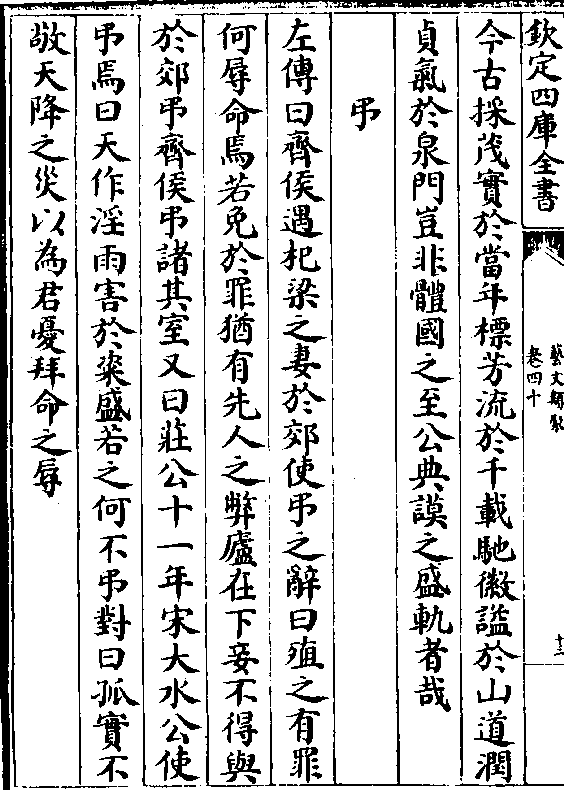 欽定四庫全書
藝文類聚
卷四十
十三
今古採茂實於當年標芳流於千載馳徽諡於山道潤
貞氣於泉門豈非體國之至公典謨之盛軌者哉
弔
左傳曰齊侯遇杞梁之妻於郊使弔之辭曰殖之有罪
何辱命焉若免於罪猶有先人之弊廬在下妾不得與
於郊弔齊侯弔諸其室又曰莊公十一年宋大水公使
弔焉曰天作淫雨害於粢盛若之何不弔對曰孤實不
敬天降之災以為君憂拜命之辱